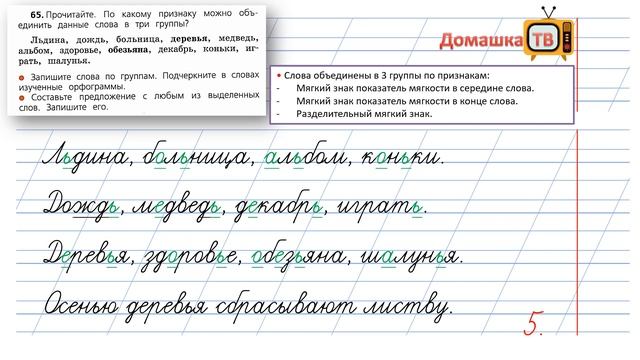 65. Прочитайте. По какому признаку можно объ-
единить данные слова в три группы?
Льдина, дождь, больница, деревья, медведь,
альбом, здоровье, обезьяна, декабрь, коньки, иг-
рать, шалунья.
● Запишите слова по группам. Подчеркните в словах
изученные орфограммы.
● Составьте предложение с любым из выделенных
слов. Запишите его.
Домашка ТВ
• Слова объединены в 3 группы по признакам:
- Мягкий знак показатель мягкости в середине слова.
- Мягкий знак показатель мягкости в конце слова.
- Разделительный мягкий знак.
Льдина, больница, альбом, коньки.
Дождь, медведь, декабрь, играть.
Деревья, здоровье, обезьяна, шалунья.
Осенью деревья сбрасывают листву.
5.